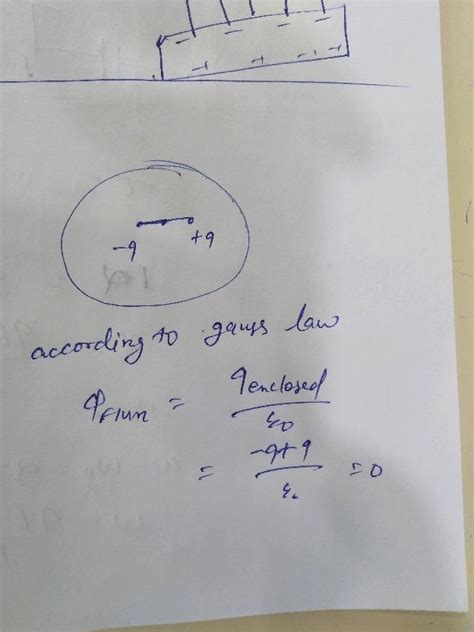 -q +q
according to gauss law
φflux = qenclosed/ε0
= -q+q/ε. = 0